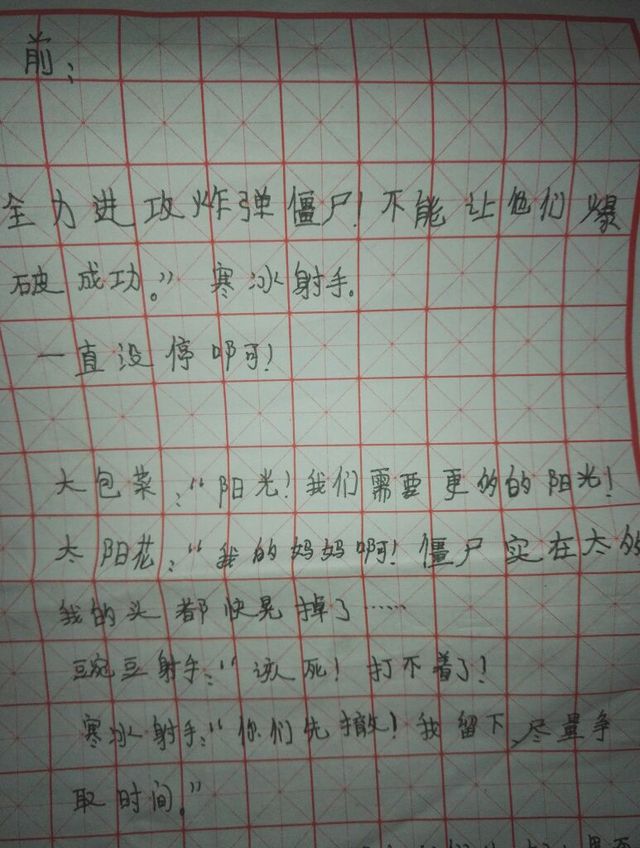 前：
全力进攻炸弹僵尸！不能让他们爆
破成功。” 寒冰射手。
一直没停啊！
大包菜：“阳光！我们需要更多的阳光！
太阳花：“我的妈妈啊！僵尸实在太多
我的头都快晃掉了……
豌豆射手：“该死！打不着了！
寒冰射手：“你们先撤！我留下，尽量争
取时间。”